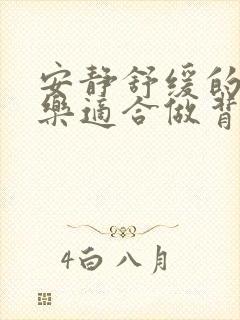 安静舒缓的
乐适合做背
4白八月